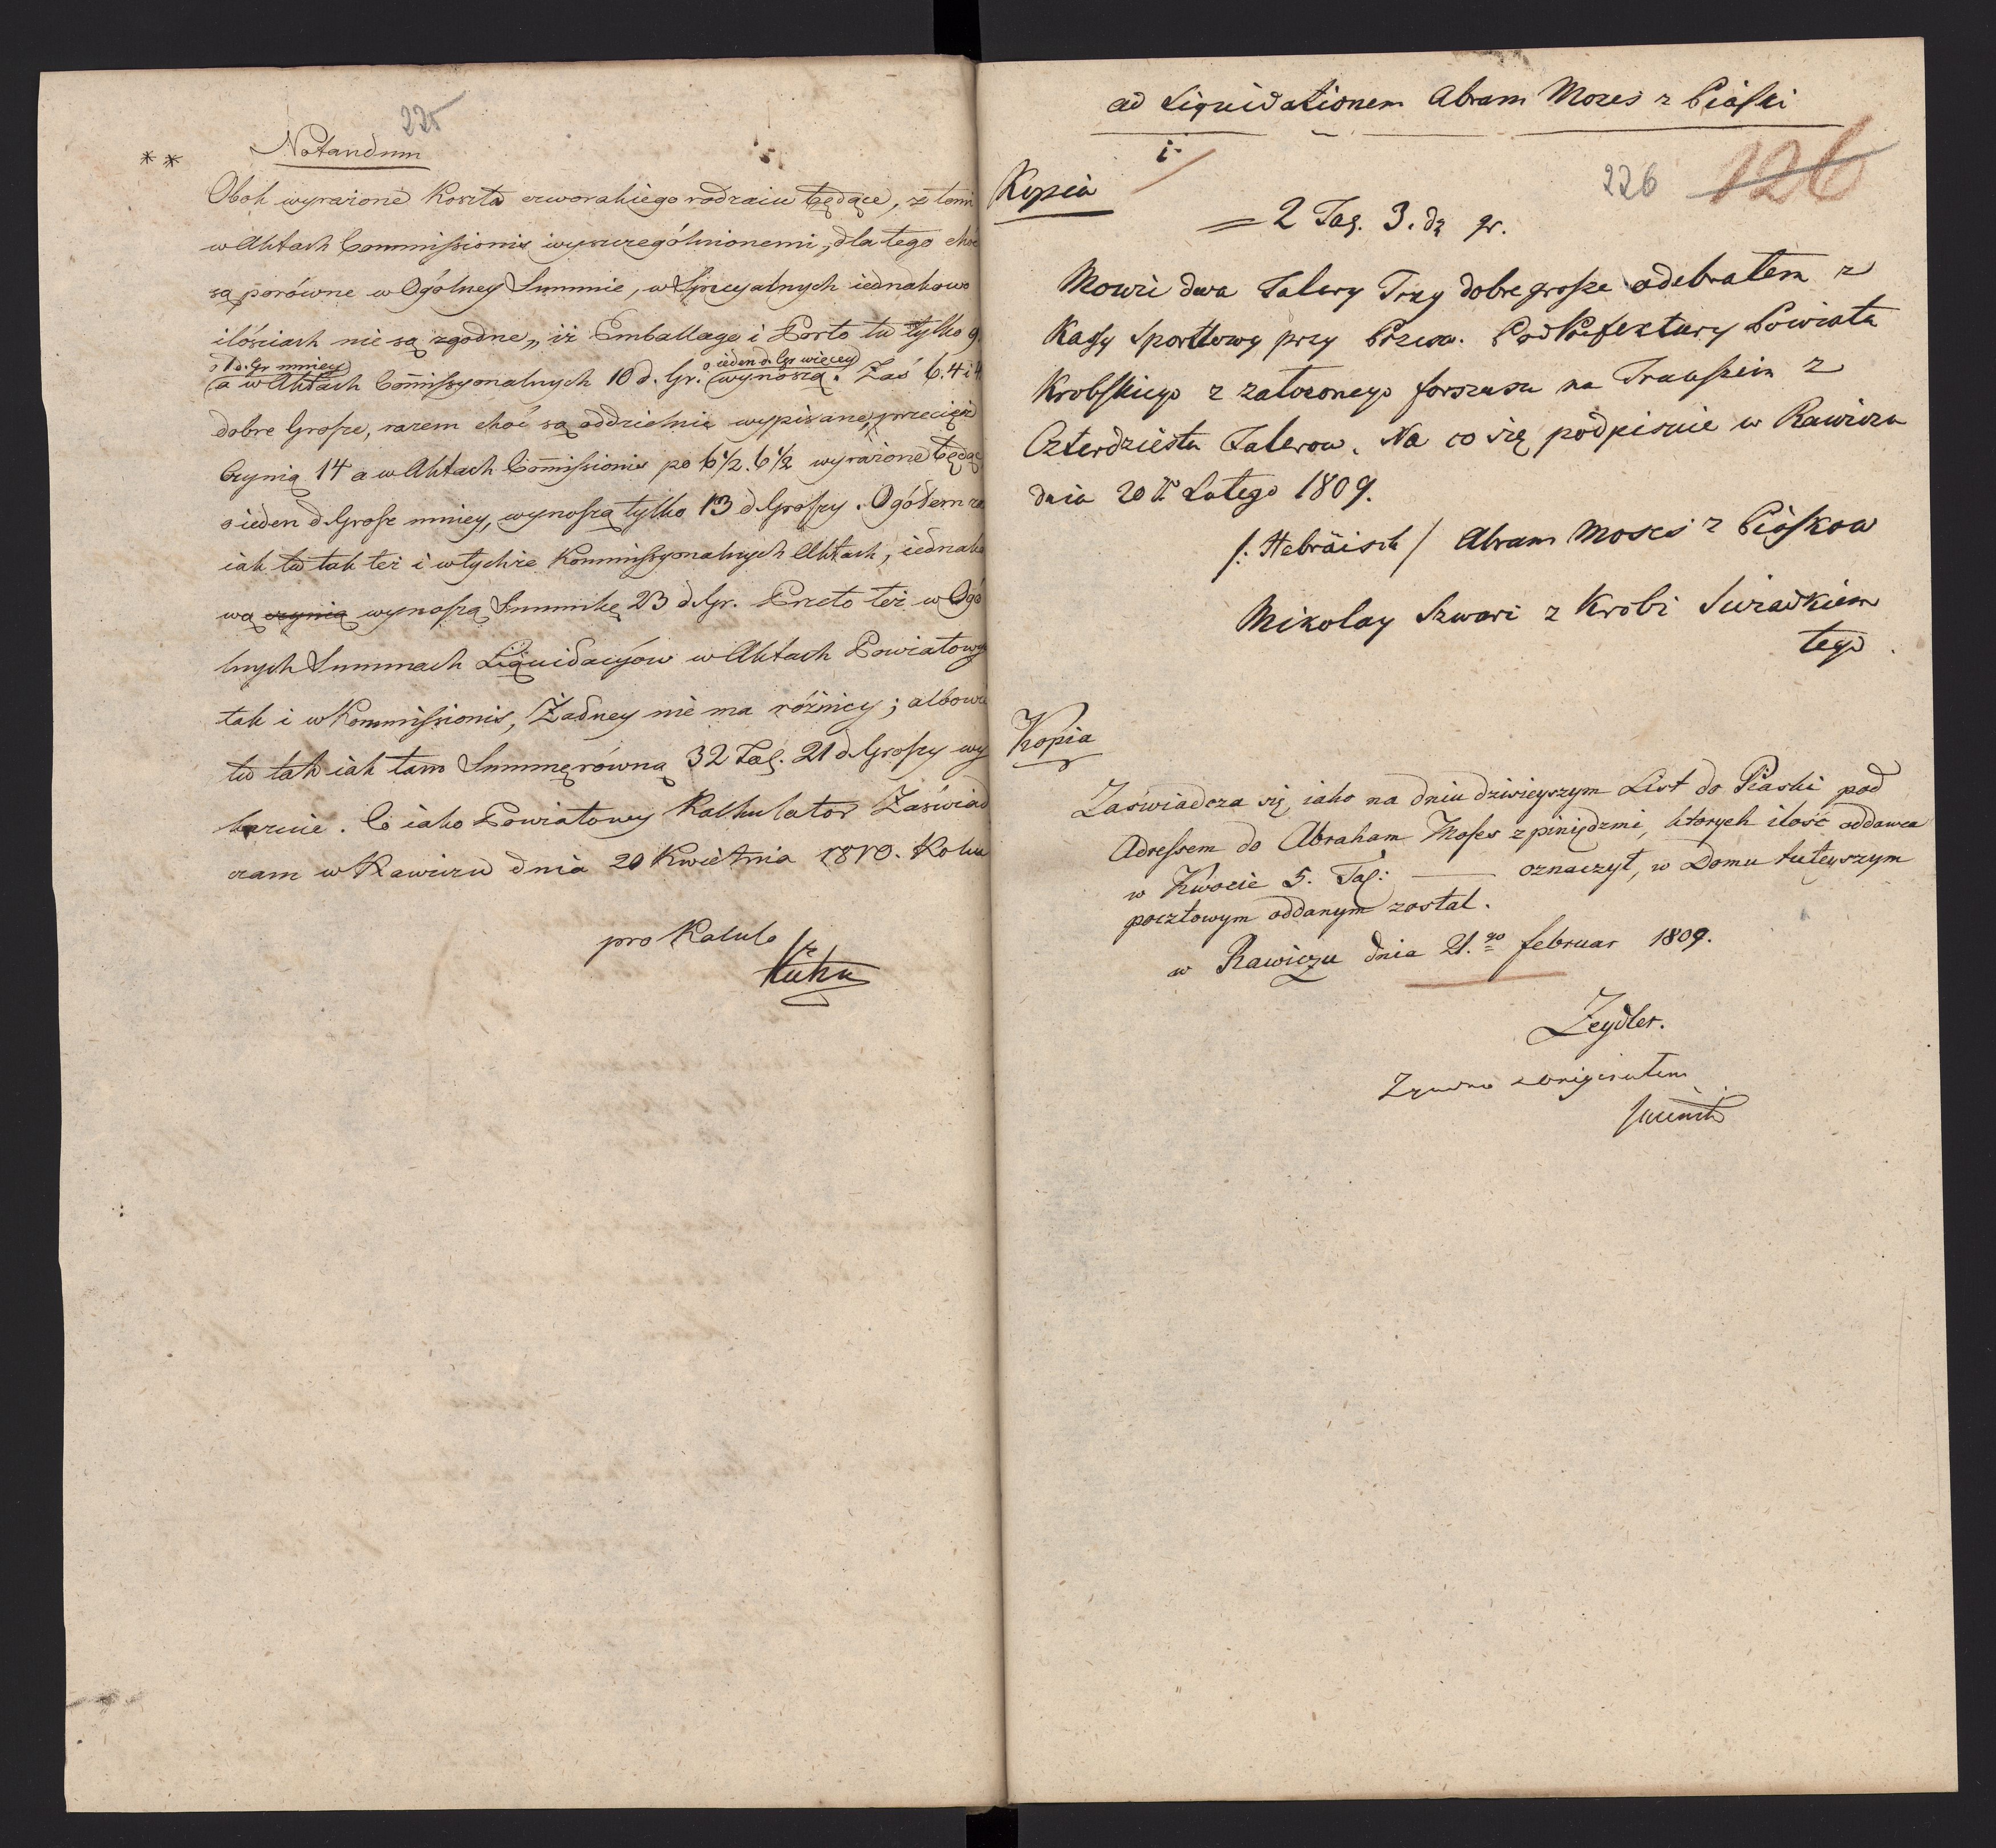 225
** Notandum
Obok wyrażone Koszta czworakiego rodzaiu będące, z temi
w Aktach Commissionis wyszczególnionemi, dla tego choć
są porówne w Ogólney Summie, w Specyalnych iednakowo
ilościach nie są zgodne, iż Emballage i Porto tu tylko 9
o 1 d. Gr mniey o ieden d. Ggr więcey
a w Aktach Commissyonalnych 10 d. Gr. wynoszą. Zaś 6. 4 i 4
dobre Grosze, razem choć są oddzielnie wypisane, przecież
Czynią 14 a w Aktach Commissionis po 6 1/2. 6 1/2 wyrażone będąc
o ieden d Grosz mniey, wynoszą tylko 13 d Groszy. Ogółem
iak tu tak też i w tychże Kommissyonalnych Aktach, iednako
wą czynią wynoszą Summkę 23 d. Gr. Przeto też w Ogó
lnych Summach Liquidacyów w Aktach Powiatowy
tak i w Kommissionis, Żadney nie ma różnicy; albowi
tu tak iak tam Summę równą 32 Tal. 21 d. Groszy wy
. Co iako Powiatowy Kalkulator Zaświad
czam w Rawiczu dnia 20 Kwietnia 1810. Roku
pro Kalulo
Kuhn
ad Liquidationem Abram Mozes z Piaski
i.
226 126
Kopia
= 2 Tal. 3. dą gr.
Mowie dwa Talery Trzy dobre grosze odebrałem z
Kassy Sportlowy przy Przesw. PodPrefektury Powiatu
Krobskiego z założonego forszusu na Transzein z
Czterdziestu Talerow. Na co się podpisuie w Rawiczu
dnia 20 Lutego 1809.
/: Hebräisch / Abram Moses z Piaskow
Mikolay Szwari z Krobi Swiadkiem
tego.
Kopia
Zaświadcza się, iako na dniu dzisieyszym List do Piaski pod
Adressem do Abraham Moses z piniędzmi, których ilość oddawca
w Kwocie 5. Tal: — oznaczył, w Domu tuteyszym
pocztowym oddanym został.
w Rawiczu dnia 21.go februar 1809.
Zeydler.
Zgodno z originałem